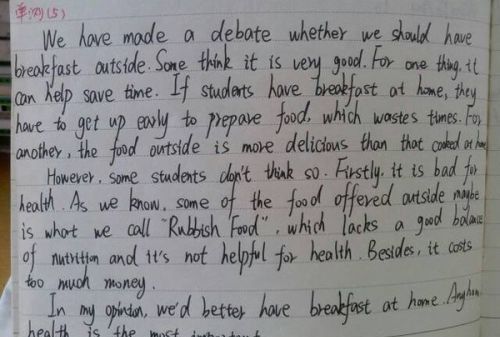 单词(5)
We have made a debate whether we should have
breakfast outside. Some think it is very good. For one thing, it
can help save time. If students have breakfast at home, they
have to get up early to prepare food, which wastes times. For
another, the food outside is more delicious than that cooked at home
However, some students don't think so. Firstly, it is bad for
health. As we know, some of the food offered outside maybe
is what we call "Rubbish Food", which lacks a good balance
of nutrition and it's not helpful for health. Besides, it costs
too much money.
In my opinion, we'd better have breakfast at home. Anyhow
health is the most important